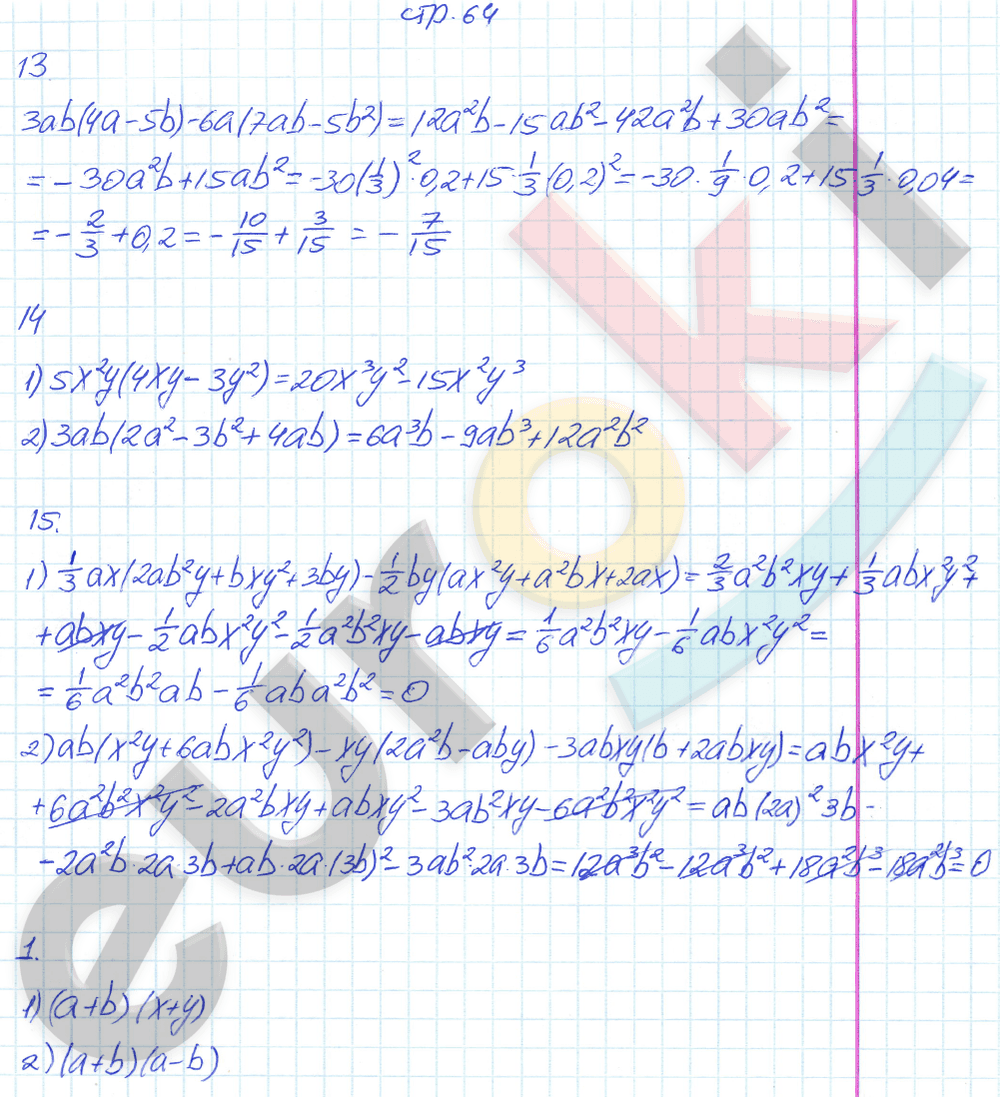 стр. 64
13
3ab(4a-5b)-6a(7ab-5b²)=12a²b-15ab²-42a²b+30ab²=
=-30a²b+15ab²=-30(1/3)²·0,2+15·1/3(0,2)²=-30·1/9·0,2+15·1/3·0,04=
=-2/3+0,2=-10/15+3/15=-7/15
14
1) 5x²y(4xy-3y²)=20x³y²-15x²y³
2) 3ab(2a²-3b²+4ab)=6a³b-9ab³+12a²b²
15.
1) 1/3ax(2ab²y+bxy²+3by)-1/2by(ax²y+a²bx+2ax)=2/3a²b²xy+1/3abx²y²+
+abxy-1/2abx²y²-1/2a²b²xy-abxy=1/6a²b²xy-1/6abx²y²=
=1/6a²b²ab-1/6aba²b²=0
2) ab(x²y+6abx²y²)-xy(2a²b-aby)-3abxy(b+2abxy)=abx²y+
+6a²b²x²y²-2a²bxy+abxy²-3ab²xy-6a²b²x²y²=ab(2a)²3b-
-2a²b·2a·3b+ab·2a·(3b)²-3ab²·2a·3b=12a³b²-12a³b²+18a²b³-18a²b³=0
1.
1) (a+b)(x+y)
2) (a+b)(a-b)
euroki